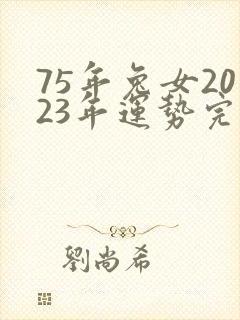 75年兔女20
23年運勢完
劉尚希